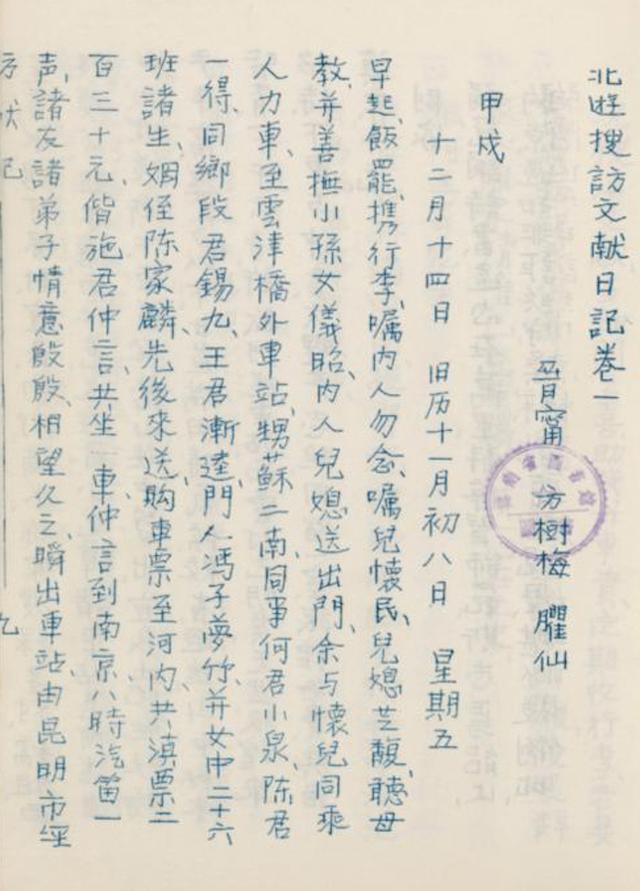 北游搜访文献日記卷一
晋甯 方樹梅 臞仙
甲戍
十二月十四日 旧历十一月初八日 星期五
早起、飯罷、携行李、嘱内人勿念、嘱兒懷民、兒媳芝馥、聽母
教、并善撫小孫女儀昭、内人兒媳送出門、余与懷兒同乘
人力車、至雲津橋外車站、甥蘇二南、同事何君小泉、陈君
一得、同鄉段君錫九、王君漸逵、門人馮子夢竹、并女中二十六
班諸生、姻侄陈家麟、先後來送、购車票至河内、共滇票二
百三十元、偕施君仲言、共坐一車、仲言到南京、八時汽笛一
声、諸友諸弟子情意殷殷、相望久之、瞬出車站、由昆明市經